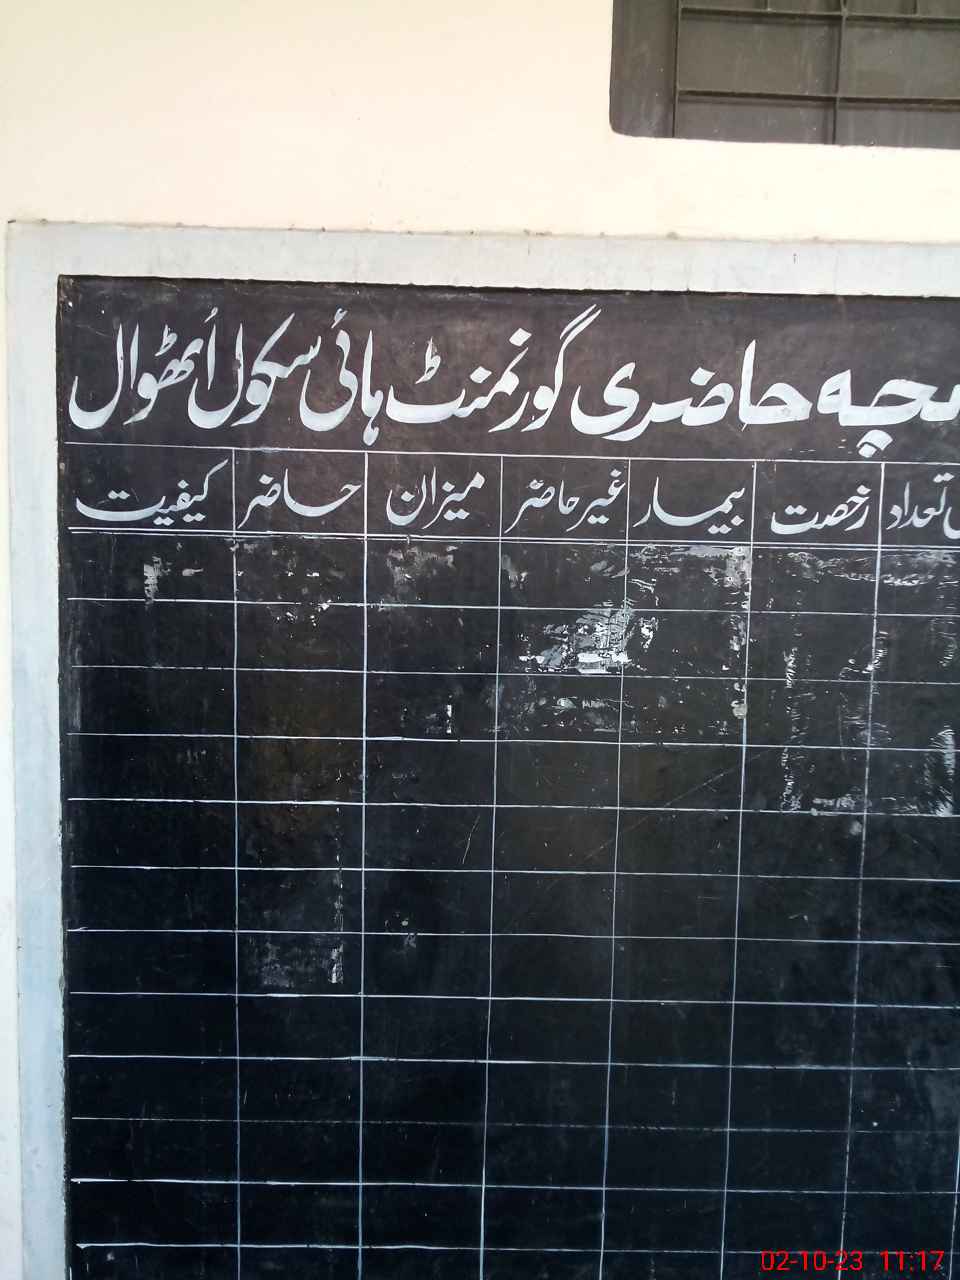 حاضری گورنمنٹ ہائی سکول اُٹھوال
تعداد رخصت بیمار غیر حاضر میزان حاضر کیفیت
02-10-23 11:17